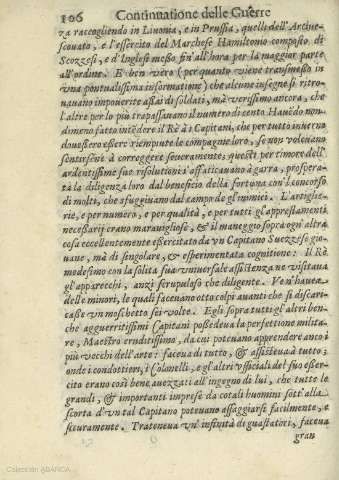 106 Continuatione delle Guerre
za raccogliendo in Liuonia, e in Prussia, quelli dell'Arciue-
scouato, e l'essercito del Marchese Hamiltonio composto di
Scozzesi, e d'Inglesi messo fin'all'hora per la maggior parte
all'ordine. E ben vero (per quanto viene transmesso in
vna pontualissima informatione) che alcune insegne si ritro-
uauano impouerite assai di soldati, ma verissimo ancora, che
l'altre per lo piu trapassauano il numero di cento Hauēdo non
dimeno fatto intēdere il Rè à i Capitani, che per tutto inuerno
douessero essere riempiute le compagnie loro, se non voleuano
sentirsene à correggere seueramente; questi per timore dell'
ardentissime sue risolutioni s'affaticauano à garra, prospera-
ta la diligenza loro dal beneficio della fortuna con l concorso
di molti, che sfuggiuano dal campo de gl'inimici. L'artiglie-
rie, e per numero, e per qualità, e per tutti gl'apprestamenti
necessarij erano marauigliose, & il maneggio sopra ogni altra
cosa eccellentemente essercitato da vn Capitano Suezzese gio-
uane, mà di singolare, & esperimentata cognitione: Il Rè
medesimo con la solita sua vniuersale assistenza ne visitaua
gl'apparecchi, anzi scrupuloso che diligente. Ve n'haueua
delle minori, le quali faceuano otto colpi auanti che si discari-
casse vn moschetto sei volte. Egli sopra tutti gl'altri ben-
che agguerritissimi Capitani possedeua la perfettione milita-
re, Maestro eruditissimo, da cui poteuano apprendere anco i
più vecchi dell'arte: faceua di tutto, & assisteua à tutto;
onde i condottieri, i Colonelli, e gl'altri vfficiali del suo esser-
cito erano così bene auezzati all'ingegno di lui, che tutte le
grandi, & importanti imprese da cotali huomini sott'alla
scorta d'vn tal Capitano poteuano assaggiarsi facilmente, e
sicuramente. Tratteneua vn'infinità di guastatori, faceua
gran
Colección ABANCA